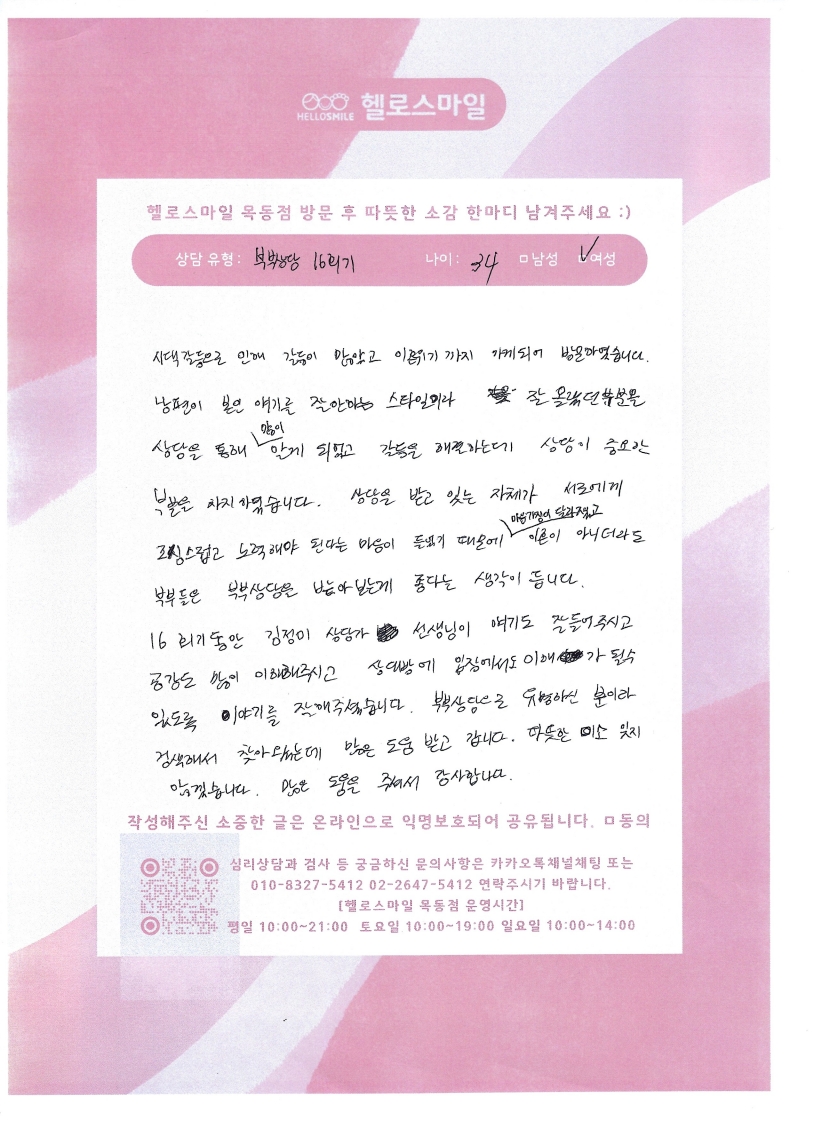 HELLOSMILE 헬로스마일
헬로스마일 목동점 방문 후 따뜻한 소감 한마디 남겨주세요 :)
상담 유형: 부부상담 16회기 나이: 34 ㅁ남성 ✓여성
시댁갈등으로 인해 갈등이 많았고 이혼위기까지 가게되어 방문하였습니다.
남편이 본인 얘기를 잘안하는 스타일이라 잘 몰랐던 부분을
상담을 통해 많이 알게 되었고 갈등을 해결하는데 상담이 중요한
부분을 차지하였습니다. 상담을 받고 있는 자체가 서로에게
조심스럽고 노력해야 된다는 마음이 들었기 때문에 마음가짐이 달라졌고 이혼이 아니더라도
부부들은 부부상담을 받아보는게 좋다는 생각이 듭니다.
16회기동안 김정미 상담가 선생님이 얘기도 잘들어주시고
공감도 많이 이해해주시고 상대방에 입장에서도 이해가 될수
있도록 이야기를 잘해주셨습니다. 부부상담으로 유명하신 분이라
검색해서 찾아왔는데 많은 도움 받고 갑니다. 따뜻한 미소 잊지
않겠습니다. 많은 도움을 주셔서 감사합니다.
작성해주신 소중한 글은 온라인으로 익명보호되어 공유됩니다. ㅁ동의
심리상담과 검사 등 궁금하신 문의사항은 카카오톡채널채팅 또는
010-8327-5412 02-2647-5412 연락주시기 바랍니다.
[헬로스마일 목동점 운영시간]
평일 10:00~21:00 토요일 10:00~19:00 일요일 10:00~14:00